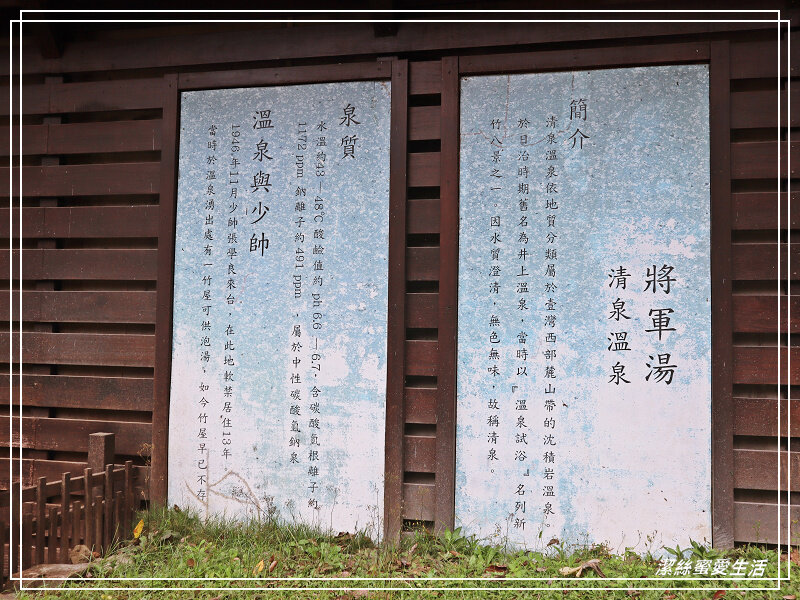 將軍湯
清泉溫泉
簡介
清泉溫泉依地質分類屬於臺灣西部麓山帶的沈積岩溫泉。
於日治時期舊名為井上溫泉，當時以『溫泉試浴』名列新
竹八景之一。因水質澄清，無色無味，故稱清泉。
泉質
水溫約43－48℃酸鹼值約 ph 6.6－6.7，含碳酸氫根離子約
1172 ppm 鈉離子約 491 ppm ，屬於中性碳酸氫鈉泉
溫泉與少帥
1946年11月少帥張學良來台，在此地軟禁居住13年
當時於溫泉湧出處有一竹屋可供泡湯，如今竹屋早已不存
潔絲蜜愛生活